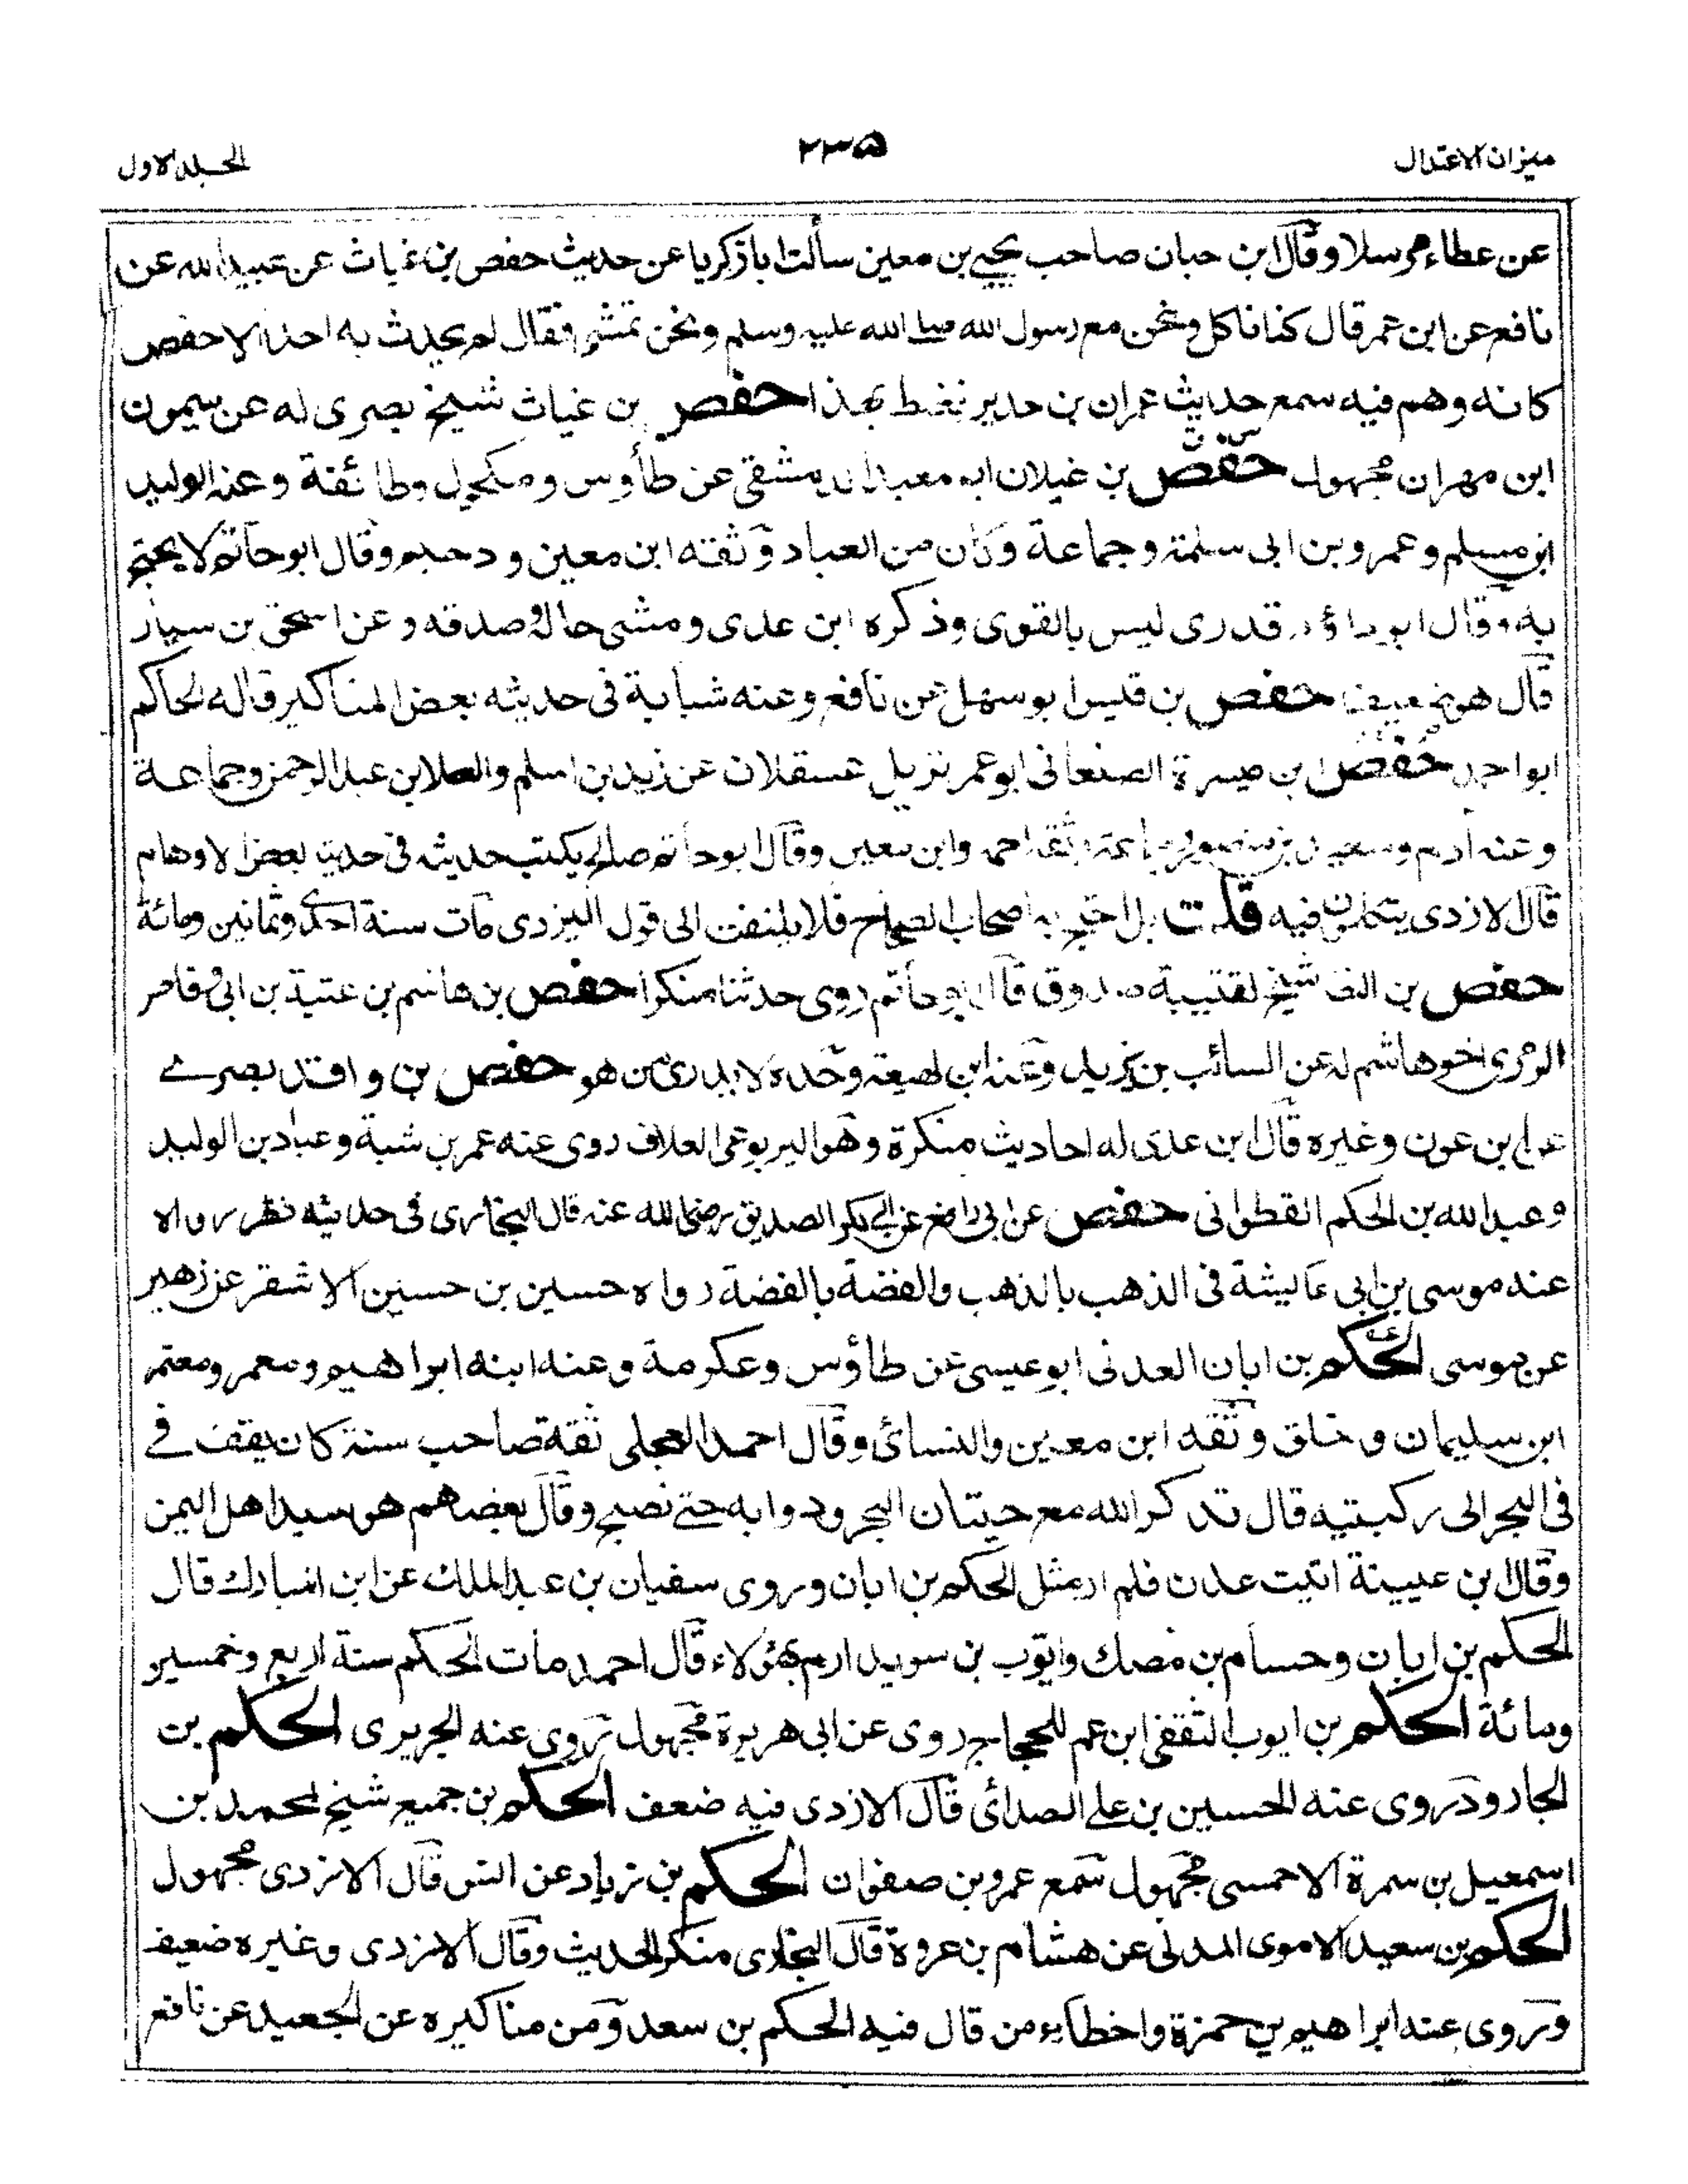 ميزان الاعتدال
٢٣٥
الجلد الاول
عن عطاء مرسلا وقال ابن حبان صاحب يحيى بن معين سألت ابا زكريا عن حديث حفص بن غياث عن عبيد الله عن
نافع عن ابن عمر قال كنا ناكل ونحن مع رسول الله صلى الله عليه وسلم ونحن نمشي فقال لم يحدث به احد الا حفص
كانه وهم فيه سمع حديث عمران بن حدير نغلط بهذا حفص بن غياث شيخ بصرى له عن ميمون
ابن مهران مجهول حفص بن غيلان ابو معبد الدمشقي عن طاؤس ومكحول وطائفة وعنه الوليد
ابن مسلم وعمرو بن ابى سلمة وجماعة وكان من العباد وثقه ابن معين ودحيم وقال ابو حاتم لا يحتج
به وقال ابو داؤد قدرى ليس بالقوى وذكره ابن عدى ومشى حاله وصدقه وعن اسحق بن سيار
قال هو ضعيف حفص بن قيس ابو سهل عن نافع وعنه شبابة فى حديثه بعض المناكير قاله الحاكم
ابو احمد حفص ابن ميسرة الصنعانى ابو عمر نزيل عسقلان عن زيد بن اسلم والعلا بن عبد الرحمن وجماعة
وعنه ادم وسعيد بن منصور وجماعة وثقه احمد وابن معين وقال ابو حاتم صالح يكتب حديثه فى حديثه بعض الاوهام
قال الازدى يتكلمون فيه قلت بل احتج به اصحاب الصحاح فلا يلتفت الى قول اليزدى مات سنة احدى وثمانين ومائة
حفص بن النضر شيخ لقتيبة صدوق قال ابو حاتم روى حدثنا منكرا حفص بن هاشم بن عتبة بن ابى وقاص
الزهرى اخو هاشم له عن السائب بن يزيد وعنه ابن لهيعة وحده لا يدرى من هو حفص بن واقد بصرى
عن ابن عون وغيره قال ابن عدى له احاديث منكرة وهو اليربوعى العلاف روى عنه عمر بن شبة وعباد بن الوليد
وعبد الله بن الحكم القطوانى حفص عن ابى رافع عن ابى بكر الصديق رضى الله عنه قال البخارى فى حديثه نظر رواه
عنه موسى بن ابى عايشة فى الذهب بالذهب والفضة بالفضة رواه حسين بن حسين الاشقر عن زهير
عن موسى الحكم بن ابان العدنى ابو عيسى عن طاؤس وعكرمة وعنه ابنه ابراهيم ومعمر ومعتمر
ابن سليمان وخلق وثقه ابن معين والنسائى وقال احمد العجلى ثقة صاحب سنة كان يقف فى
فى البحر الى ركبتيه قال تد كر الله مع حيتان البحر ودوابه حتى نصبح وقال بعضهم هو سيد اهل اليمن
وقال ابن عيينة اتيت عدن فلم ار مثل الحكم بن ابان وروى سفيان بن عبد الملك عن ابن المبارك قال
الحكم بن ابان وحسام بن مصك وايوب بن سويد ارم بهؤلاء قال احمد مات الحكم سنة اربع وخمسين
ومائة الحكم بن ايوب الثقفى ابن عم للحجاج روى عن ابى هريرة مجهول روى عنه الجريرى الحكم بن
الجارود روى عنه الحسين بن على الصدائى قال الازدى فيه ضعف الحكم بن جميع شيخ لمحمد بن
اسمعيل بن سمرة الاحمسى مجهول سمع عمرو بن صفوان الحكم بن زياد عن انس قال الازدى مجهول
الحكم بن سعيد الاموى المدنى عن هشام بن عروة قال البخارى منكر الحديث وقال الازدى وغيره ضعيف
وروى عنه ابراهيم بن حمزة واخطاء من قال فيه الحكم بن سعد ومن مناكيره عن الجعيد عن نافع